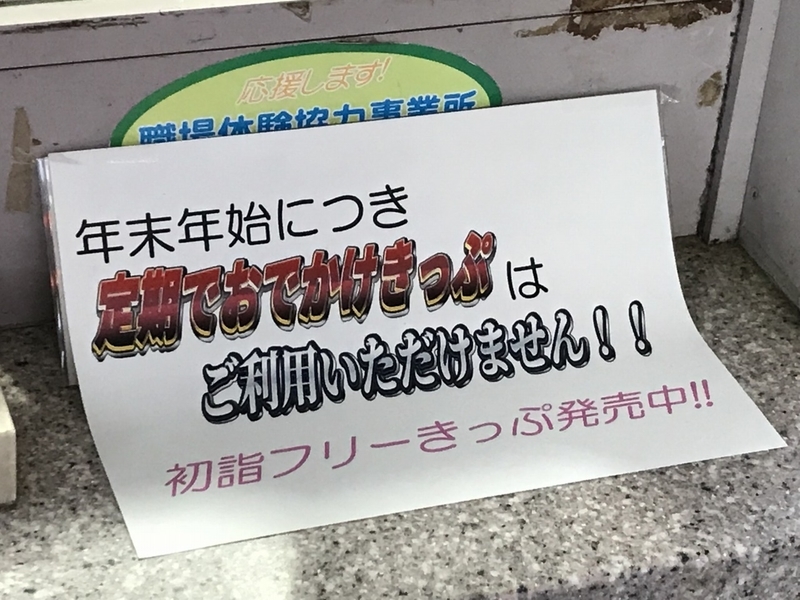 応援します!
職場体験協力事業所
年末年始につき
定期でおでかけきっぷは
ご利用いただけません!!
初詣フリーきっぷ発売中!!